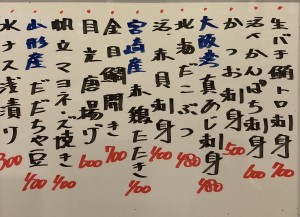 生バチ鮪トロ刺身 700
活〆かんぱち刺身 600
かつお刺身 500
大阪産真あじ刺身 480
北海だこぶつ 480
活赤貝刺身 400
宮崎産赤鶏たたき 400
金目鯛開き 700
目光唐揚げ 600
帆立マヨネーズ焼き 400
山形産だだちゃ豆 400
水ナス浅漬り 300